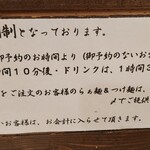 制となっております。
予約のお時間より（御予約のないお
時間１０分後・ドリンクは、１時間３
をご注文のお客様のらぁ麺&つけ麺は、
〆でご提供
お客様は、お会計に入らせて頂きます。